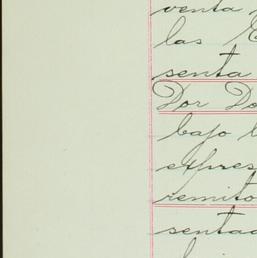 venta
las
senta
Por Do
bajo l
expres
remito
sentad